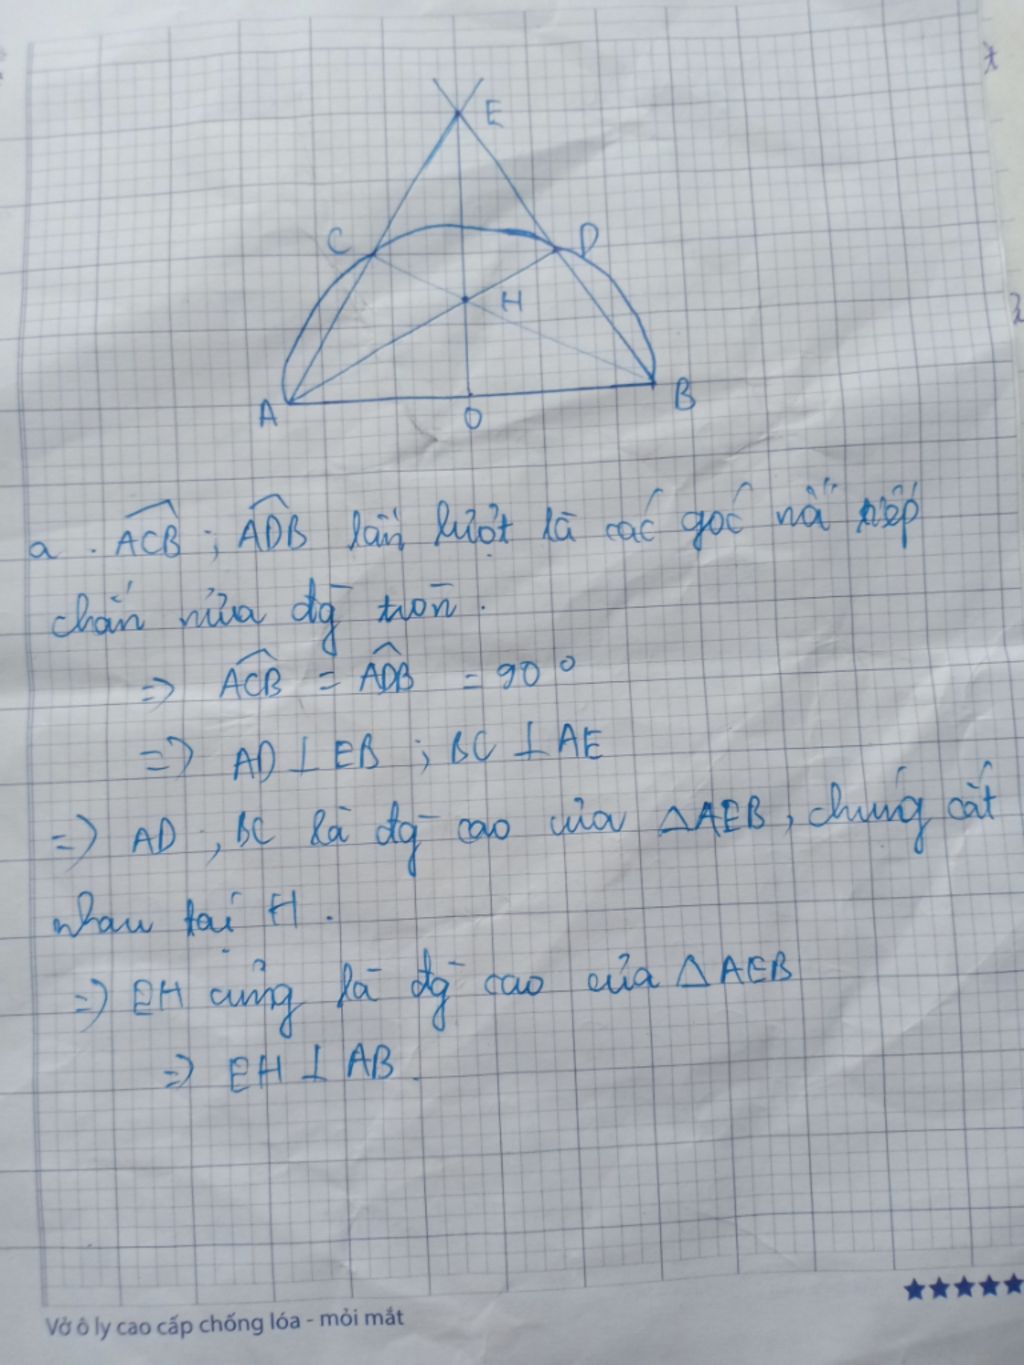 E
C
D
H
A
O
B
a. ACB ; ADB lần lượt là các góc nội tiếp
chắn nửa đg tròn.
=> ACB = ADB = 90°
=> AD ⊥ EB ; BC ⊥ AE
=> AD, BC là đg cao của △AEB, chúng cắt
nhau tại H.
=> EH cũng là đg cao của △AEB
=> EH ⊥ AB.
Vở ô ly cao cấp chống lóa - mỏi mắt